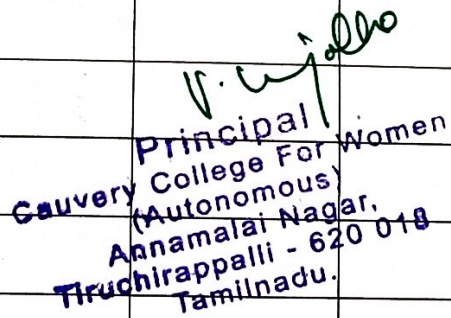 Principal
Cauvery College For Women
(Autonomous)
Annamalai Nagar,
Tiruchirappalli - 620 018
Tamilnadu.